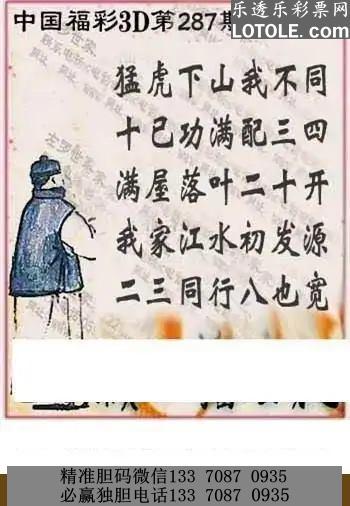 乐透乐彩票网
LOTOLE.COM
中国福彩3D第287期
猛虎下山我不同
十已功满配三四
满屋落叶二十开
我家江水初发源
二三同行八也宽
精准胆码微信133 7087 0935
必赢独胆电话133 7087 0935